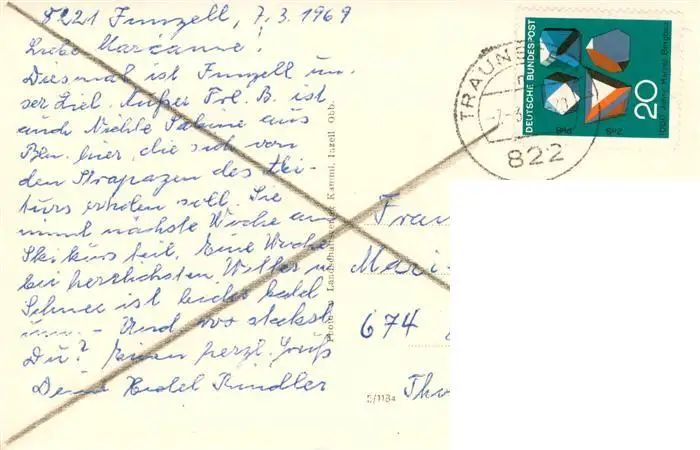 8221 Inzell, 7.3.1969
Liebe Marianne!
Diesmal ist Inzell un-
ser Ziel. Außer Frl. B. ist
auch Nichte Sabine aus
Bln. hier, die sich von
den Strapazen des Abi-
turs erholen soll. Sie
nimmt nächste Woche am
Skikurs teil. Eine Woche
bei herrlichstem Wetter u.
Schnee ist leider bald
um. - Und wo steckst
Du? Einen herzl. Gruß
Deine
Frau
Mari-
674
Thv
5/1184
Photo u. Landschaftsverlag Kamml, Inzell Obb.
TRAUNS
822
DEUTSCHE BUNDESPOST
20
1000 Jahre Harzer Bergbau